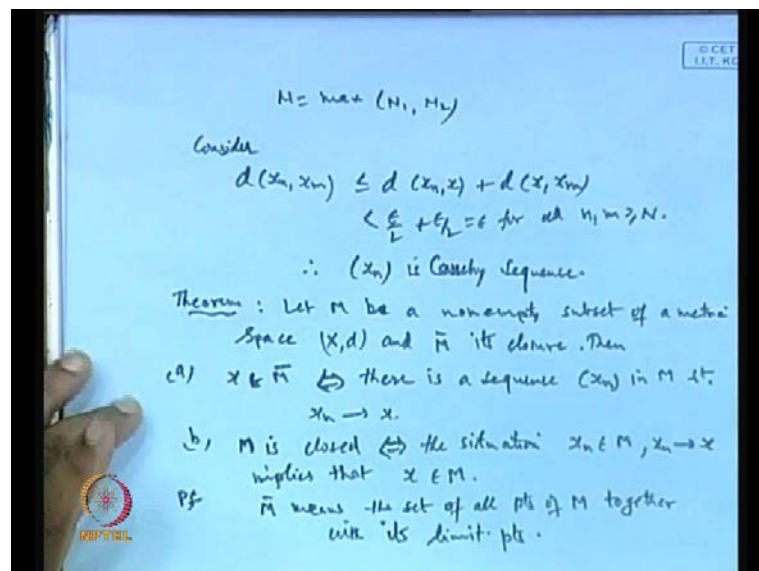 © CET
I.I.T. KG
N = max (N₁, N₂)
Consider
d(xₙ, xₘ) ≤ d(xₙ, x) + d(x, xₘ)
< ε/2 + ε/2 = ε for all n, m ≥ N.
∴ (xₙ) is Cauchy Sequence.
Theorem : Let M be a nonempty subset of a metric
Space (X, d) and M̄ its closure. Then
(a) x ∈ M̄ ⇔ there is a sequence (xₙ) in M st.
xₙ → x.
b) M is closed ⇔ the situation xₙ ∈ M, xₙ → x
implies that x ∈ M.
Pf M̄ means the set of all pts of M together
with its limit pts.
NPTEL